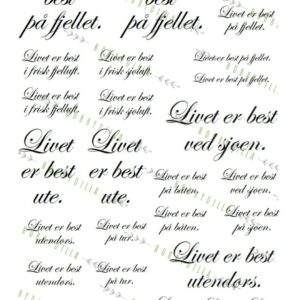 best
på fjellet.
best
på fjellet.
Livet er best
på fjellet.
Livet er best
i frisk fjelluft.
Livet er best
i frisk sjøluft.
Livet er best på fjellet.
Livet er best på fjellet.
Livet er best
i frisk fjelluft.
Livet er best
i frisk sjøluft.
Livet er best
ved sjøen.
Livet
er best
ute.
Livet
er best
ute.
Livet er best
på båten.
Livet er best
ved sjøen.
Livet er best
på båten.
Livet er best
ved sjøen.
Livet er best
utendørs.
Livet er best
på tur.
Livet er best
utendørs.
Livet er best
utendørs.
Livet er best
på tur.